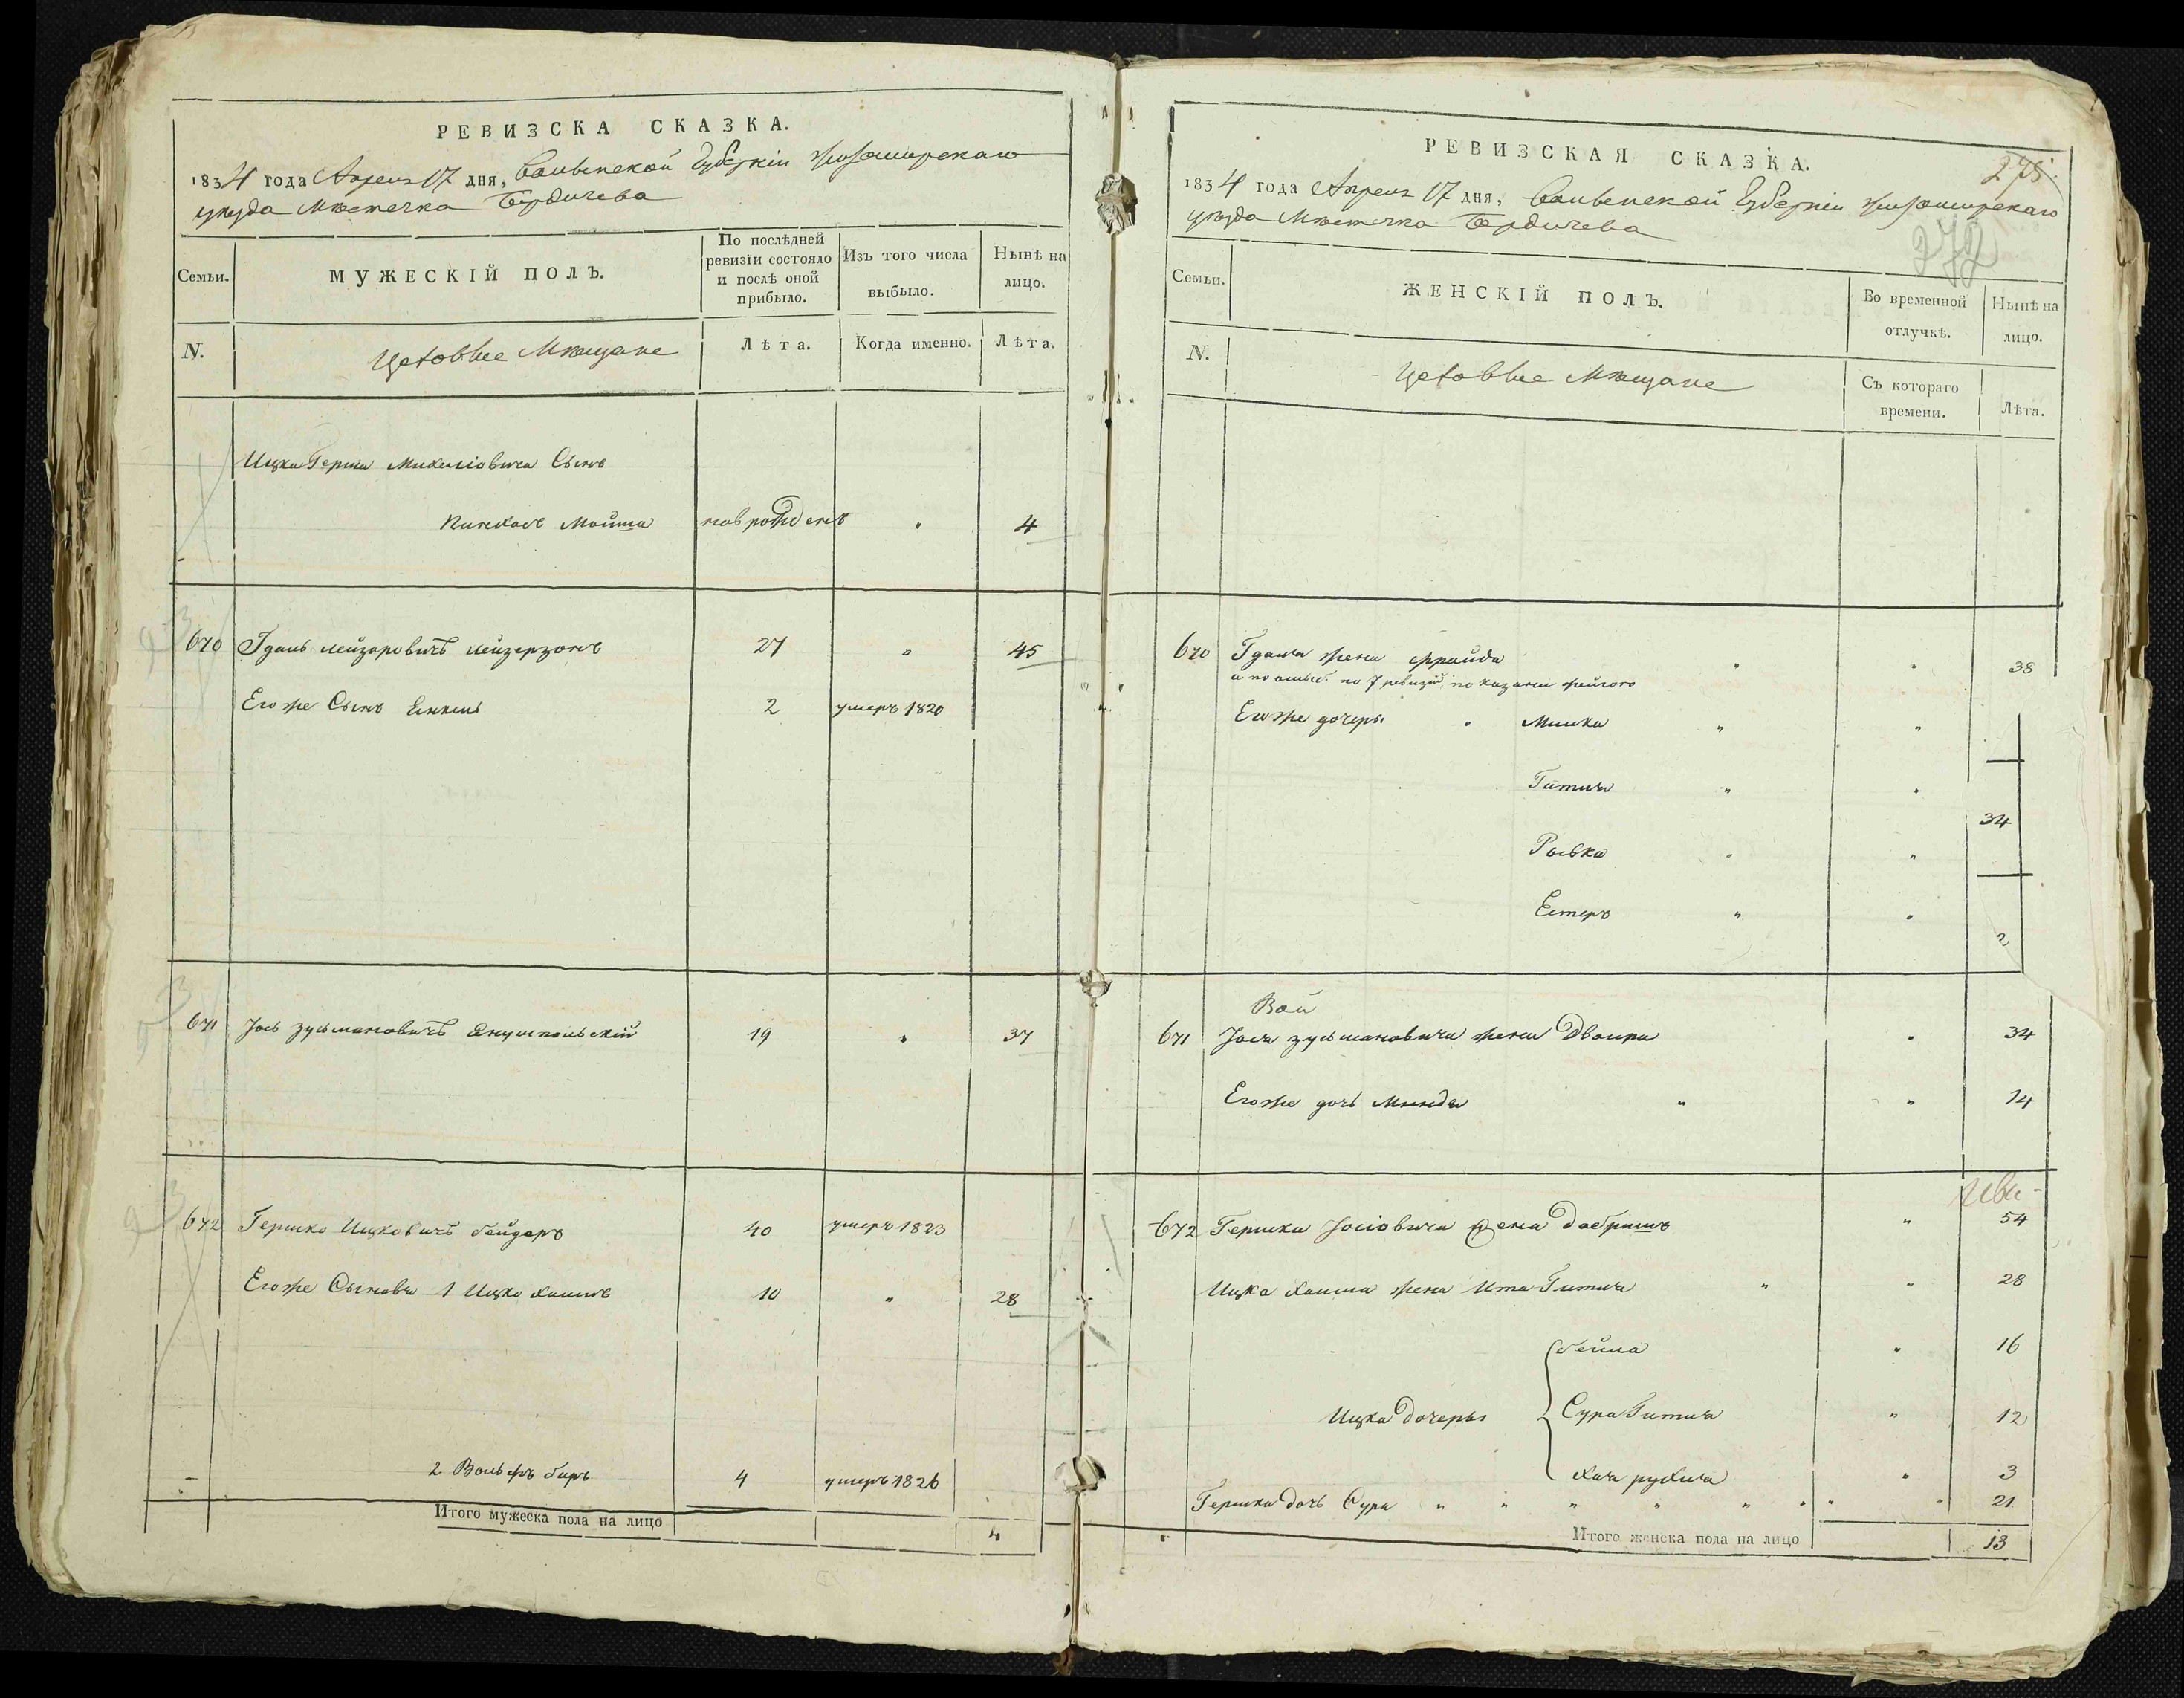 РЕВИЗСКА СКАЗКА.
1834 года Апреля 17 дня, Волынской Губерніи Житомирскаго
уезда Местечка Бердичева
Семьи.
МУЖЕСКІЙ ПОЛЪ.
По послѣдней ревизіи состояло и послѣ оной прибыло.
Изъ того числа выбыло.
Нынѣ на лицо.
N.
Цеховые Мещане
Лѣта.
Когда именно.
Лѣта.
Ицка Герша Сынъ
Пинхасъ Мойша новрожденъ " 4
670 Гдаль Лейзоровичъ Лейзерзонъ 27 " 45
Его же Сынъ Янкель 2 умеръ 1820
671 Іось Зусьмановичъ 19 " 37
672 Гершко Ицковичъ 40 умеръ 1823
Его же Сыновья 1 Ицко Хаимъ 10 " 28
2 Вольфъ Беръ 4 умеръ 1826
Итого мужеска пола на лицо 4
РЕВИЗСКАЯ СКАЗКА.
275
1834 года Апреля 17 дня, Волынской Губерніи Житомирскаго
272
уезда Местечка Бердичева
Семьи.
ЖЕНСКІЙ ПОЛЪ.
Во временной отлучкѣ.
Нынѣ на лицо.
N.
Цеховые Мещане
Съ котораго времени.
Лѣта.
670 Гдаля жена Фрайда " " 38
а по ошиб. по 7 ревизій показана
Его же дочеры " Минка " "
Гитля " "
34
Рывка " "
Естеръ " "
671 Іося Зусьмановича жена Двойра " 34
Его же дочь Минда " " 14
672 Гершки жена Добришъ " 54
Ицка Хаима жена Ита Гитля " " 28
Бейла " 16
Ицка дочеры Сура Гитля " 12
Хая Рухля " 3
Гершка дочь Сура " " " " " " " " 21
Итого женска пола на лицо 13